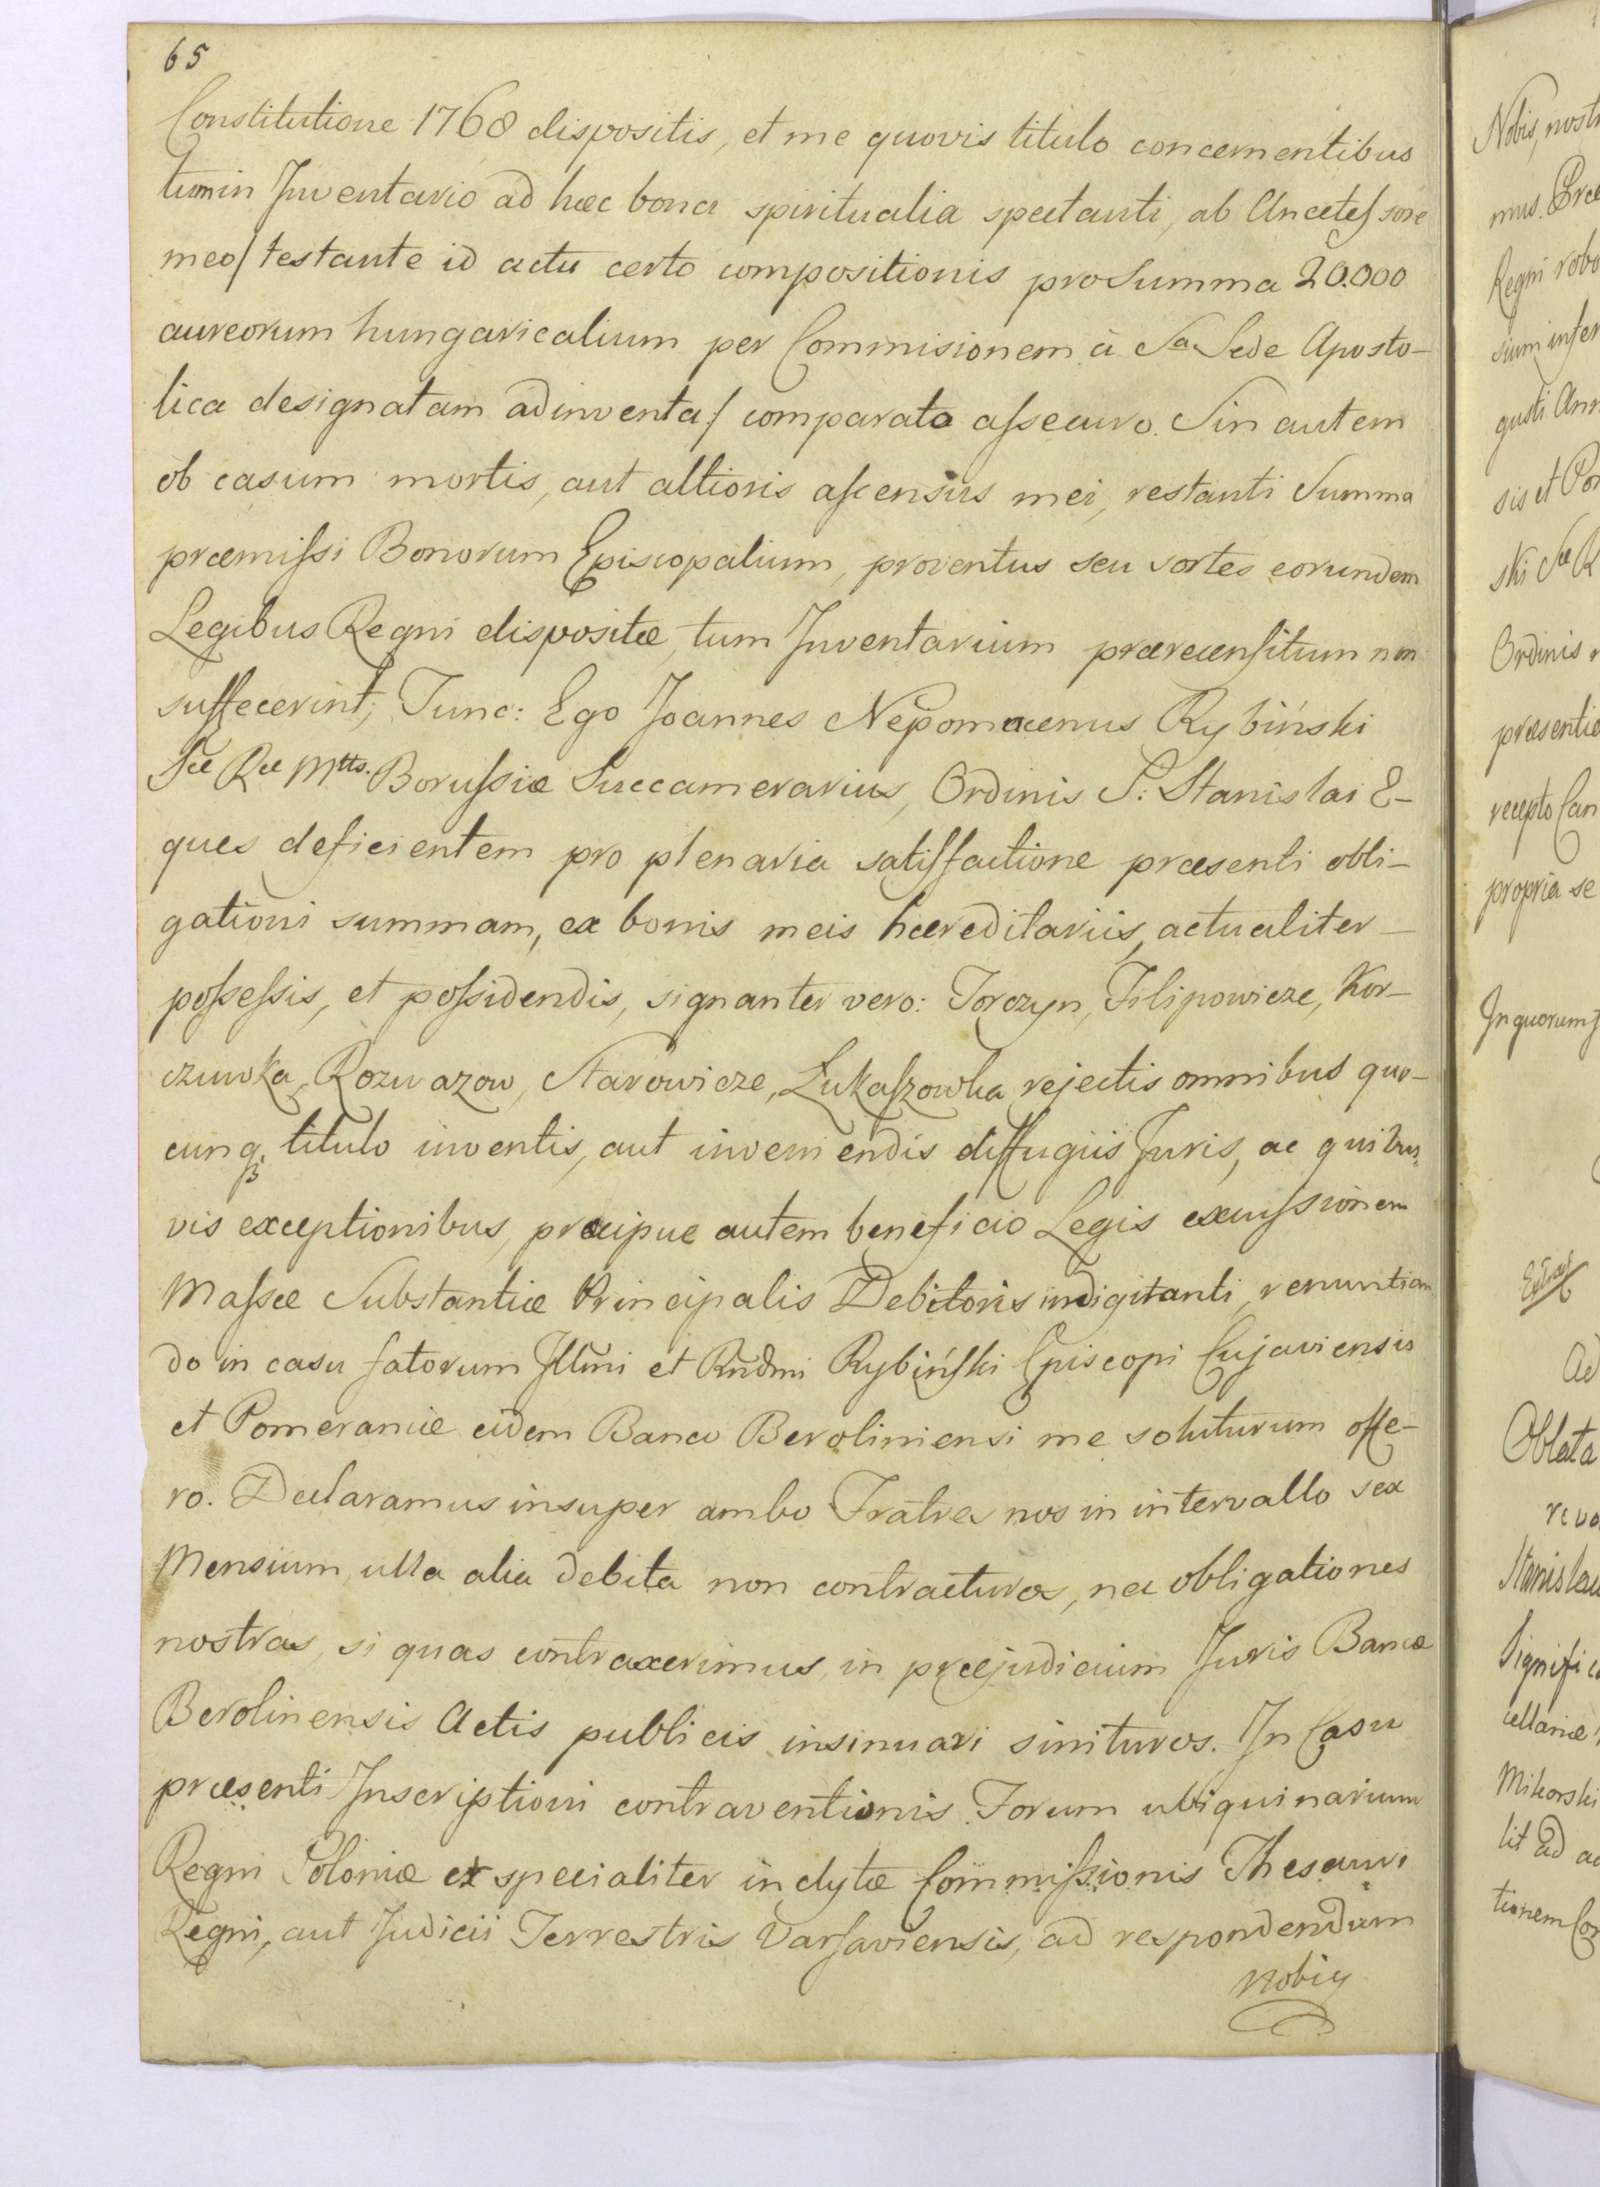 65
Constitutione 1768 dispositis, et me quovis titulo concernentibus
tum in Inventario ad hæc bona spiritualia spectanti, ab Antecessore
meo/ testante id actu certo compositionis pro Summa 20.000
aureorum hungaricalium per Commisionem à Sa Sede Aposto-
lica designatam adinventa/ comparato assecuro. Sin autem
ob casum mortis, aut altioris ascensus mei, restanti Summa
præmissi Bonorum Episcopalium, proventus seu sortes eorundem
Legibus Regni dispositæ, tum Inventarium prærecensitum non
suffecerint; Tunc: Ego Joannes Nepomucenus Rybiński
Sæ Ræ Mtts. Borussiæ Succamerarius, Ordinis S: Stanislai E-
ques deficientem pro plenaria satisfactione præsenti obli-
gationi summam, ex bonis meis hæreditariis, actualiter
possessis, et possidendis, signanter vero: Torczyn, Filipowicze, Kor-
czuwka, Rozwazow, Starowicze, Łukaszowka, rejectis omnibus quo-
cunq titulo inventis, aut inveniendis diffugiis Juris, ac quibus-
vis exceptionibus, præcipue autem beneficio Legis excussionem
Massæ Substantiæ Principalis Debitoris indigitanti, renuntian
do in casu fatorum Illmi et Rndmi Rybiński Episcopi Cujaviensis
et Pomeraniæ eidem Banco Beroliniensi me soluturum offe-
ro. Declaramus insuper ambo Fratres nos in intervallo sex
Mensium, ulla alia debita non contracturos, nec obligationes
nostras, si quas contraxerimus, in præjudicium Juris Bancæ
Berolinensis Actis publicis insinuari sinituros. In Casu
præsenti Inscriptioni contraventionis Forum ubiquinarium
Regni Poloniæ et specialiter inclytæ Commissionis Thesauri
Regni, aut Judicii Terrestris Varsaviensis, ad respondendum
Nobis
Nobis, nostr
mus. Præ
Regni robo
sium inser
gusti Ann
sis et Pom
ski Sæ R
Ordinis
præsenti
recepto Can
propria se
In quorum
Ad
Oblata
revo
Stanislau
Signific
cellariæ
Mikorski
lit ad ac
tionem Con